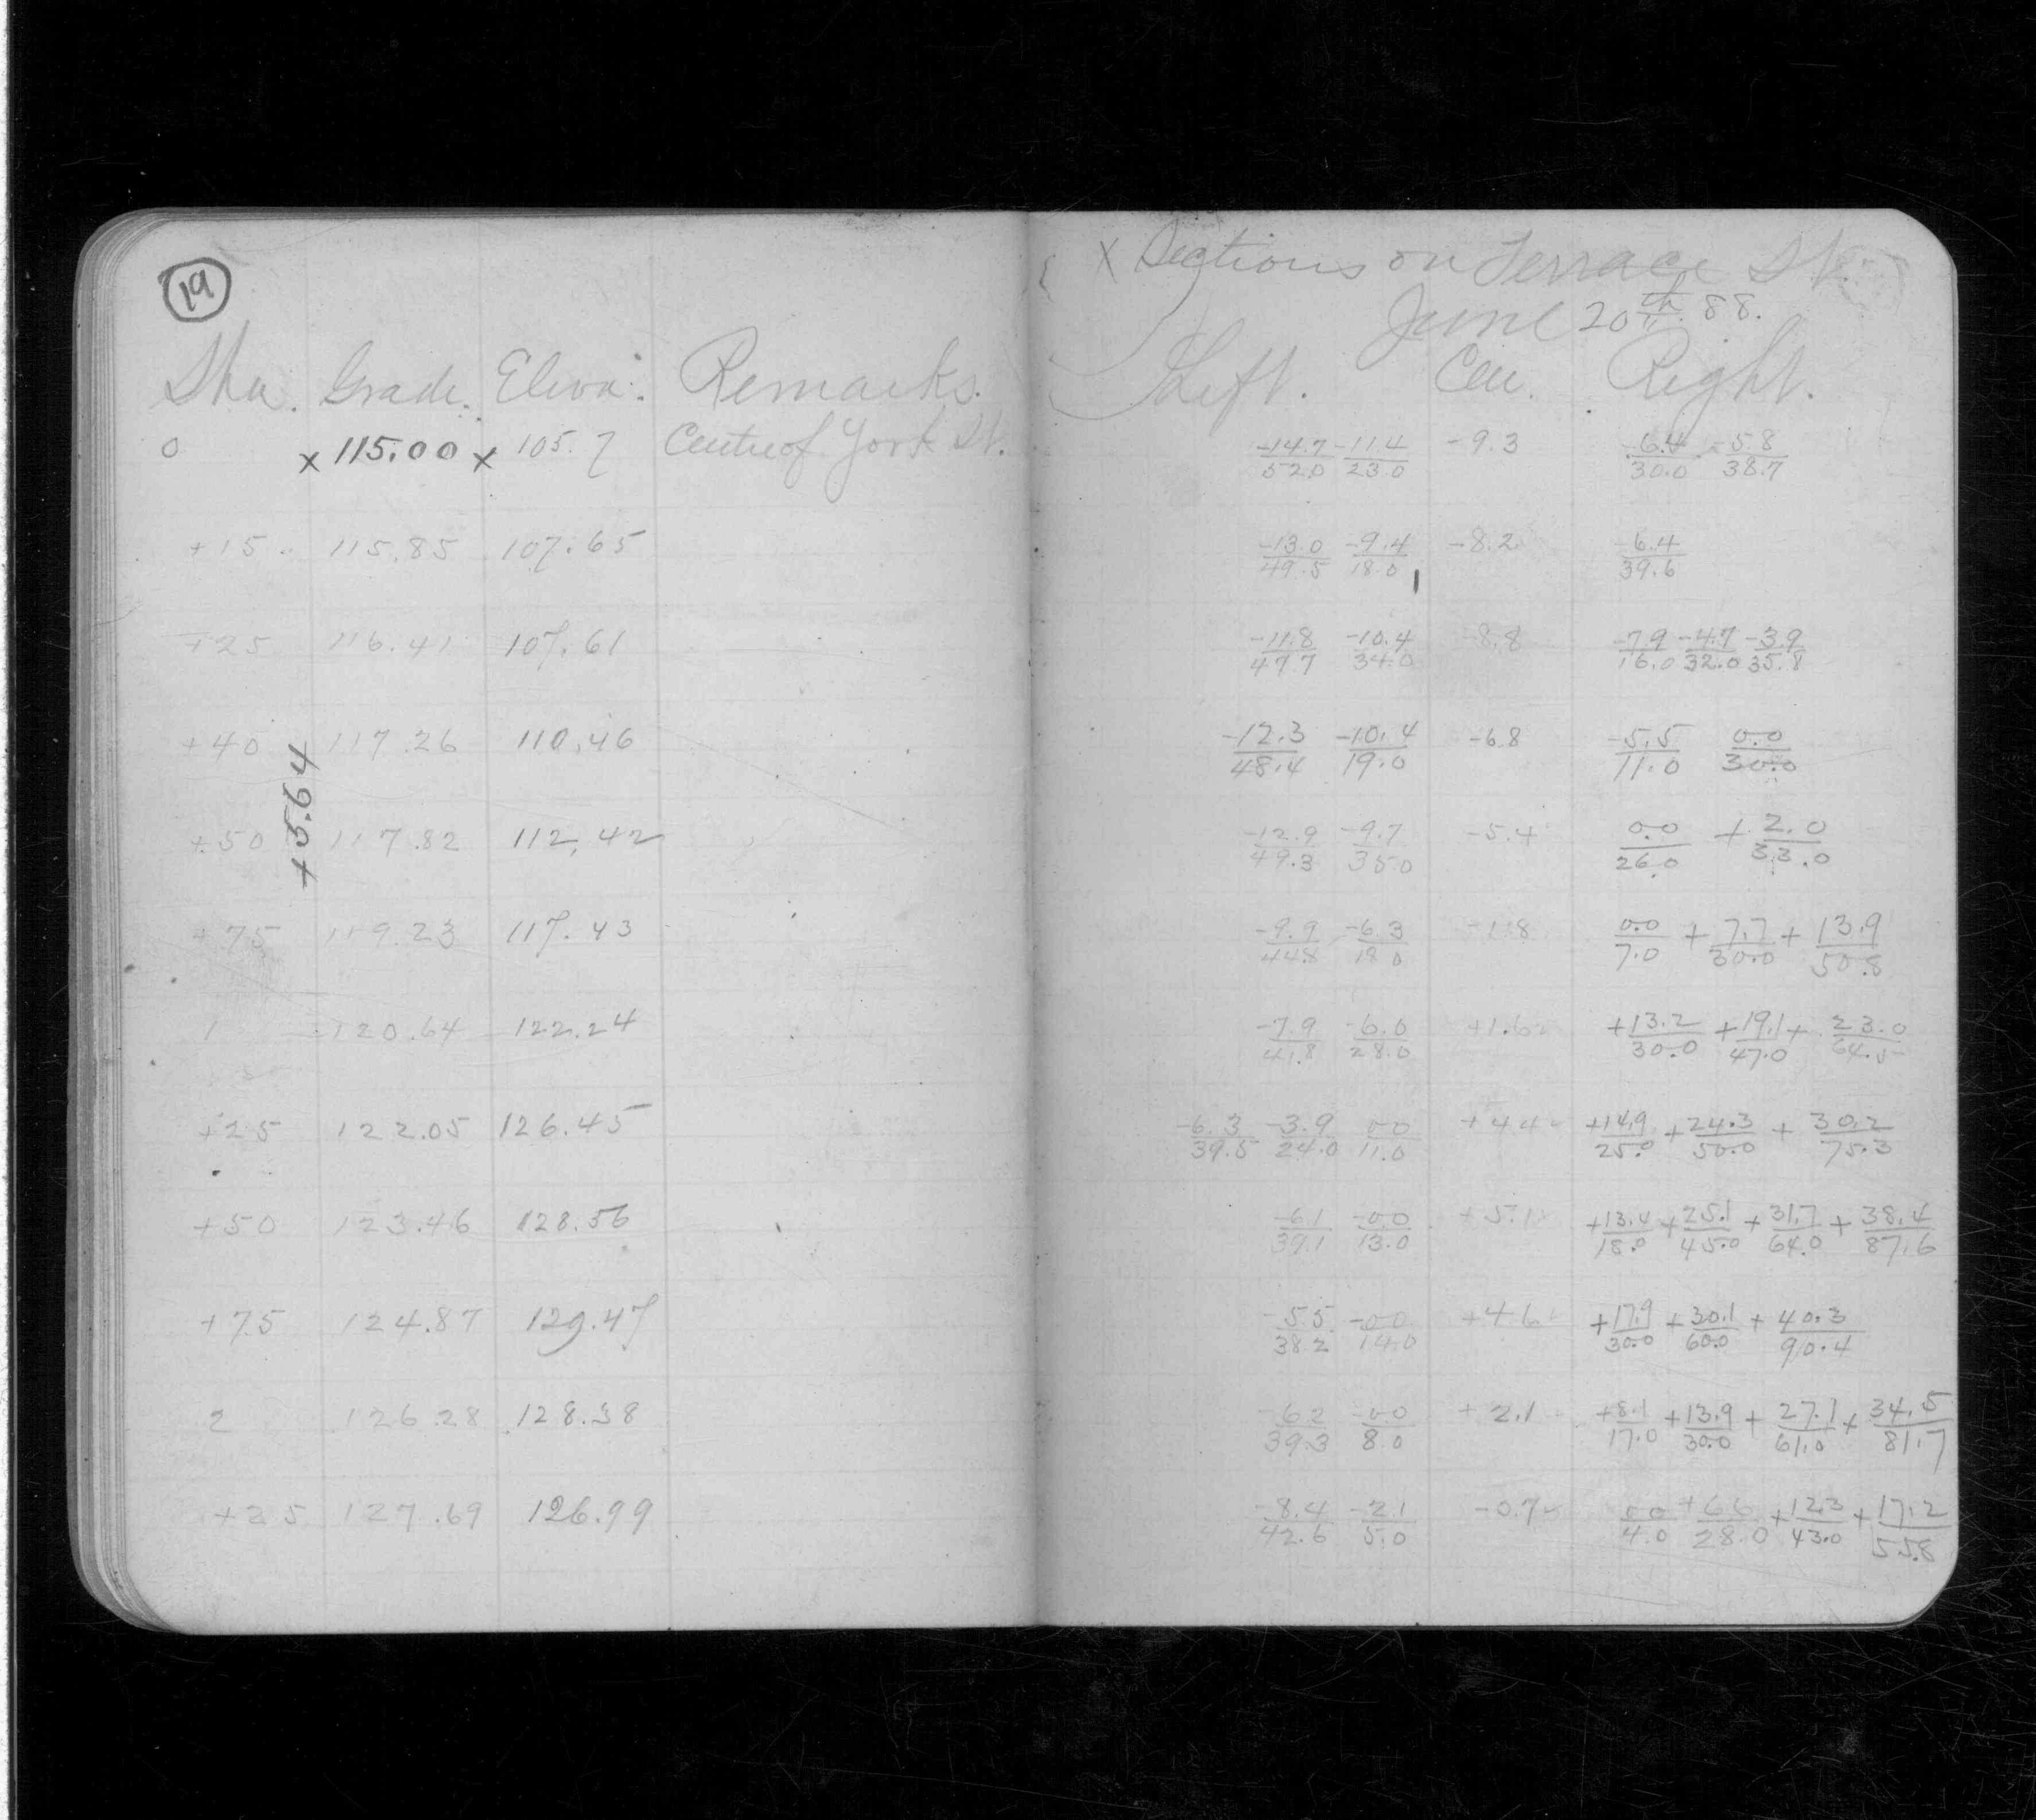 19
Sta. Grade. Eleva. Remarks.
0 x 115.00 x 105.7 Centre of York St.
+15 115.85 107.65
+25 116.41 107.61
+40 117.26 110.46
+5.64
+50 117.82 112.42
+75 119.23 117.43
1 120.64 122.24
+25 122.05 126.45
+50 123.46 128.56
+75 124.87 129.47
2 126.28 128.38
+25 127.69 126.99
X Sections on Terrace St.
June 20th 88.
Left. Cen. Right.
-14.7/52.0 -11.4/23.0 -9.3 -6.4/30.0 -5.8/38.7
-13.0/49.5 -9.4/18.0 -8.2 -6.4/39.6
-11.8/47.7 -10.4/34.0 -8.8 -7.9/16.0 -4.7/32.0 -3.9/35.8
-12.3/48.4 -10.4/19.0 -6.8 -5.5/11.0 0.0/30.0
-12.9/49.3 -9.7/35.0 -5.4 0.0/26.0 +2.0/33.0
-9.9/44.8 -6.3/18.0 -1.8 0.0/7.0 +7.7/30.0 +13.9/50.8
-7.9/41.8 -6.0/28.0 +1.6 +13.2/30.0 +19.1/47.0 +23.0/64.5
-6.3/39.5 -3.9/24.0 00/11.0 +4.4 +14.9/25.0 +24.3/50.0 +30.2/75.3
-6.1/39.1 -00/13.0 +5.1 +13.4/18.0 +25.1/45.0 +31.7/64.0 +38.4/87.6
-5.5/38.2 -00/14.0 +4.6 +17.9/30.0 +30.1/60.0 +40.3/90.4
-6.2/39.3 -00/8.0 +2.1 +8.1/17.0 +13.9/30.0 +27.1/61.0 +34.5/81.7
-8.4/42.6 -2.1/5.0 -0.7 00/4.0 +6.6/28.0 +12.3/43.0 +17.2/55.8